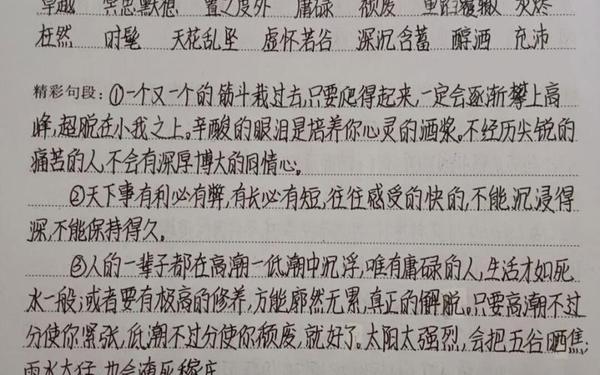 卓越 冥思默想 置之度外 庸碌 颓废 重蹈覆辙 灾殃
枉然 时髦 天花乱坠 虚怀若谷 深沉含蓄 醇酒 充沛
精彩句段：①一个又一个的筋斗栽过去,只要爬得起来,一定会逐渐攀上高
峰,超脱在小我之上。辛酸的眼泪是培养你心灵的酒浆。不经历尖锐的
痛苦的人,不会有深厚博大的同情心。
②天下事有利必有弊,有长必有短,往往感受的快的,不能沉浸得
深,不能保持得久。
③人的一辈子都在高潮一低潮中沉浮,唯有庸碌的人,生活才如死
水一般;或者要有极高的修养,方能廓然无累,真正的解脱。只要高潮不过
分使你紧张,低潮不过分使你颓废,就好了。太阳太强烈,会把五谷晒焦;
雨水太猛,也会淹死稼庄